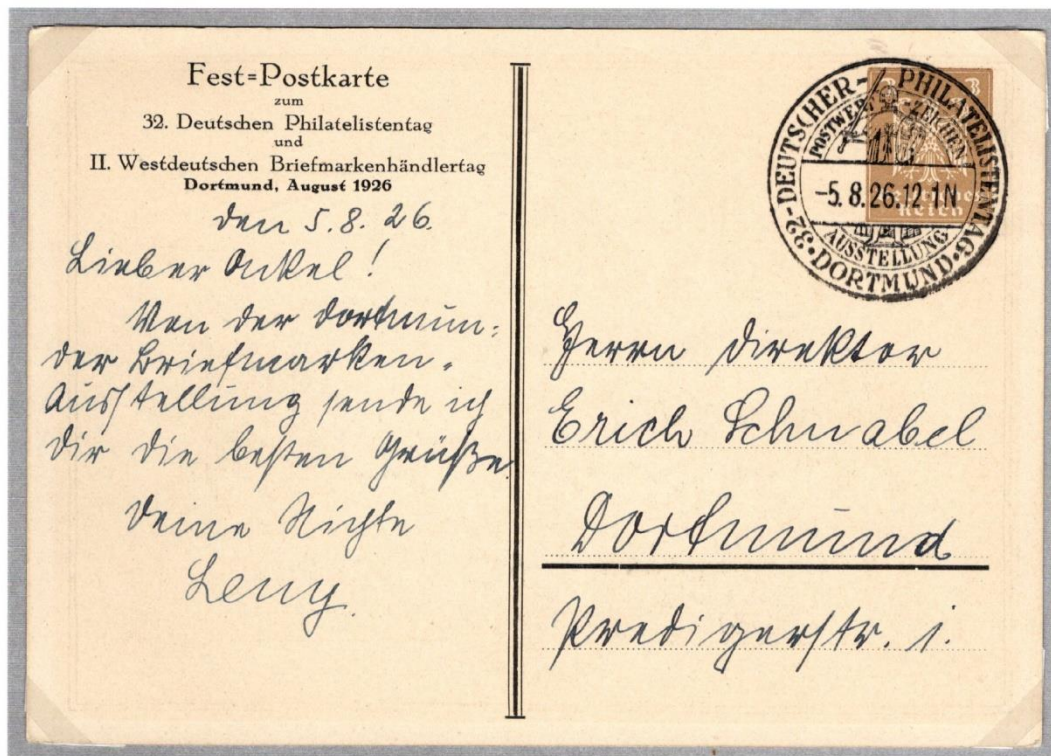 Fest=Postkarte
zum
32. Deutschen Philatelistentag
und
II. Westdeutschen Briefmarkenhändlertag
Dortmund, August 1926
den 5.8.26.
Lieber Onkel!
Von der Dortmun:
der Briefmarken-
Ausstellung sende ich
Dir die besten Grüße.
Deine Nichte
Leny.
32. DEUTSCHER PHILATELISTENTAG · DORTMUND ·
POSTWERTZEICHEN
-5.8.26.12 1N
AUSSTELLUNG
3 3
Deutsches
Reich
Herrn Direktor
Erich Schnabel
Dortmund
Predigerstr. 1.